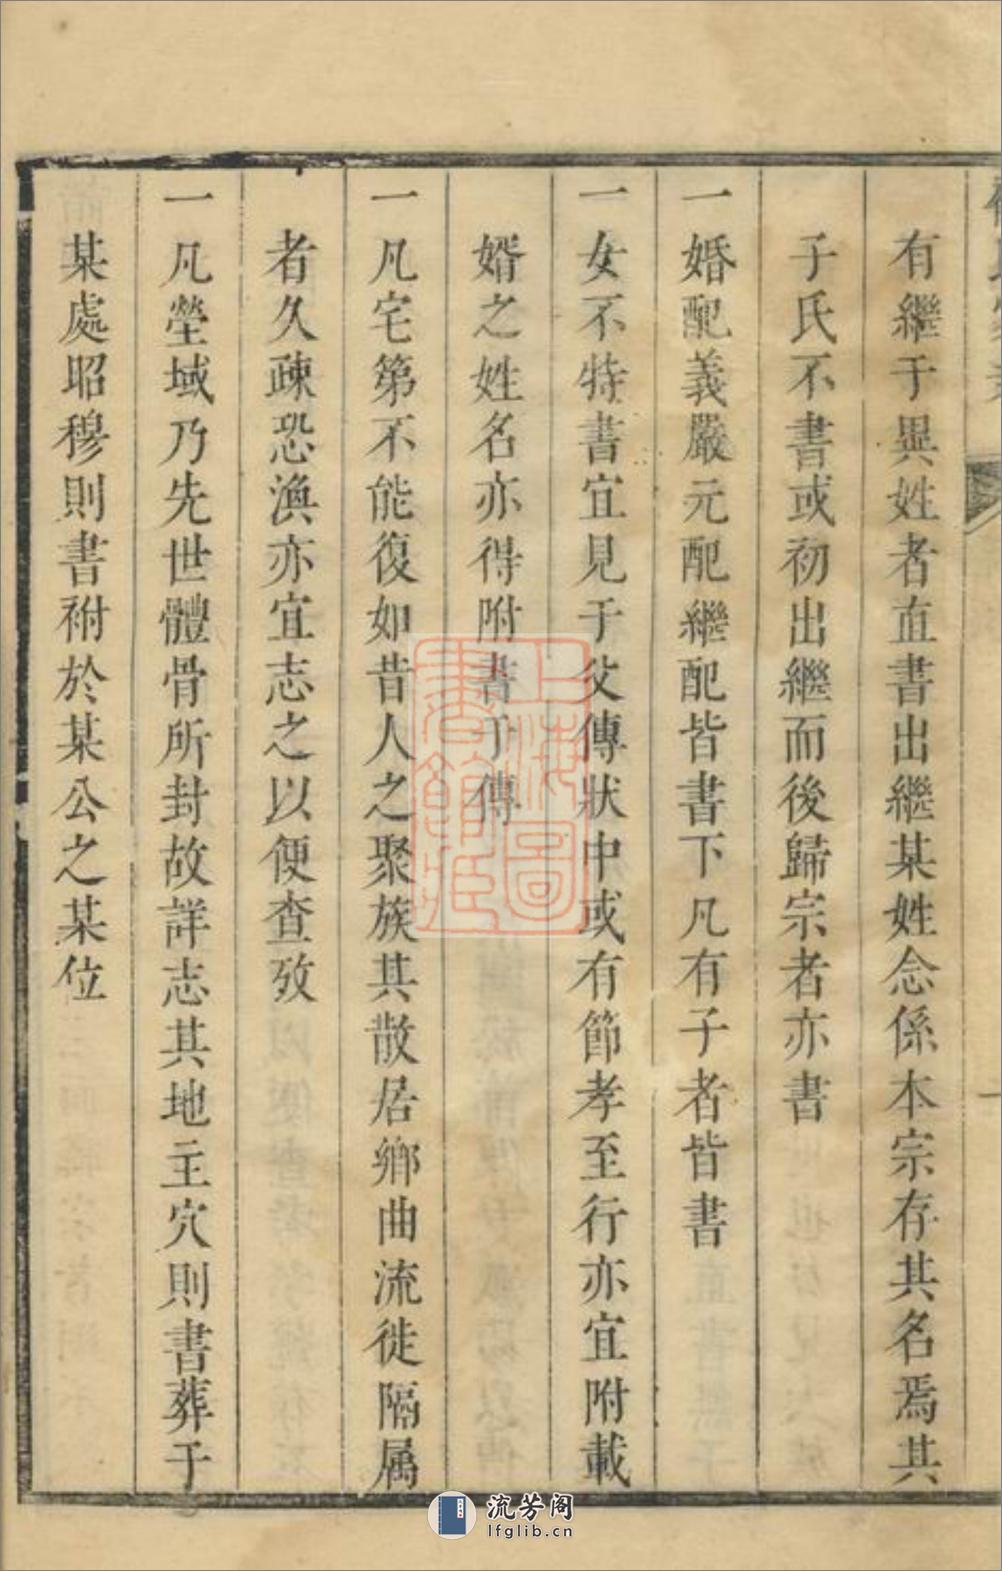 有繼于異姓者直書出繼某姓念係本宗存其名焉其
子氏不書或初出繼而後歸宗者亦書
一婚配義嚴元配繼配皆書下凡有子者皆書
一女不特書宜見于父傳狀中或有節孝至行亦宜附載
婿之姓名亦得附書于傳
一凡宅第不能復如昔人之聚族其散居鄉曲流徙隔属
者久疎恐渙亦宜志之以便查攷
一凡塋域乃先世體骨所封故詳志其地主穴則書葬于
某處昭穆則書祔於某公之某位
上海圖
書館藏
流芳阁
lfglib.cn